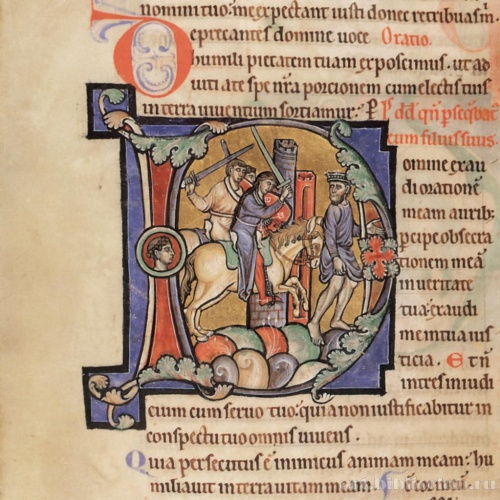 nomini tuo: me expectant iusti donec retribuas m.
Deprecantes domine uoce Oratio.
humili pietatem tuam exposcimus. ut ad
uiti a te spe nr̃a porcionem cum electis tuis
in terra uiuentium sortiamur: P̱ Ps dd̃ qñ pseq̃bat
eum filius suus.
Domine exau
di orationẽ
meam aurib;
p̱cipe obsecra
tionem meã
in ueritate
tua: exaudi
me in tua ius
ticia. Et ñ
intres in iudi
cium cum seruo tuo: quia non iustificabitur in
conspectu tuo omnis uiuens.
Quia persecutus ẽ inimicus animam meam: hu
miliauit in terra uitam meam.